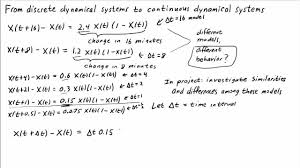 From discrete dynamical systems to continuous dynamical systems
X(t+16) - X(t) = 2.4 X(t)(1-X(t)) Δt=16 model
change in 16 minutes
X(t+8) - X(t) = 1.2 X(t)(1-X(t)) Δt=8
change in 8 minutes
different models,
different behavior?
X(t+4) - X(t) = 0.6 X(t)(1-X(t)) Δt=4
X(t+2) - X(t) = 0.3 X(t)(1-X(t)) Δt=2
X(t+1) - X(t) = 0.15 X(t)(1-X(t)) Δt=1
X(t+0.5) - X(t) = 0.075 X(t)(1-X(t))
In project: investigate similarities
and differences among these models
Let Δt = time interval
X(t+Δt) - X(t) = Δt 0.15